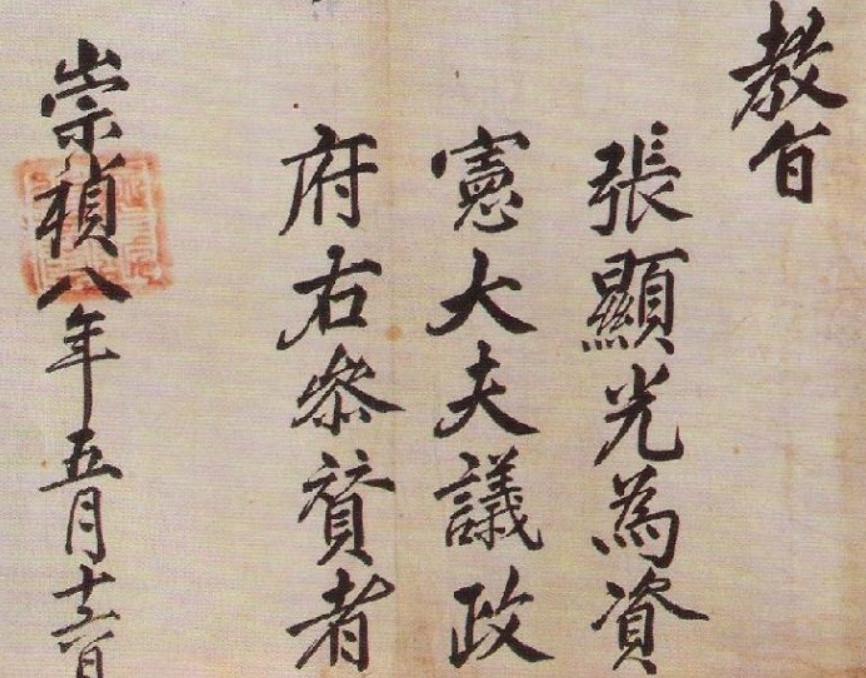 教旨
張顯光為資
憲大夫議政
府右叅賛者
崇禎八年五月十六日